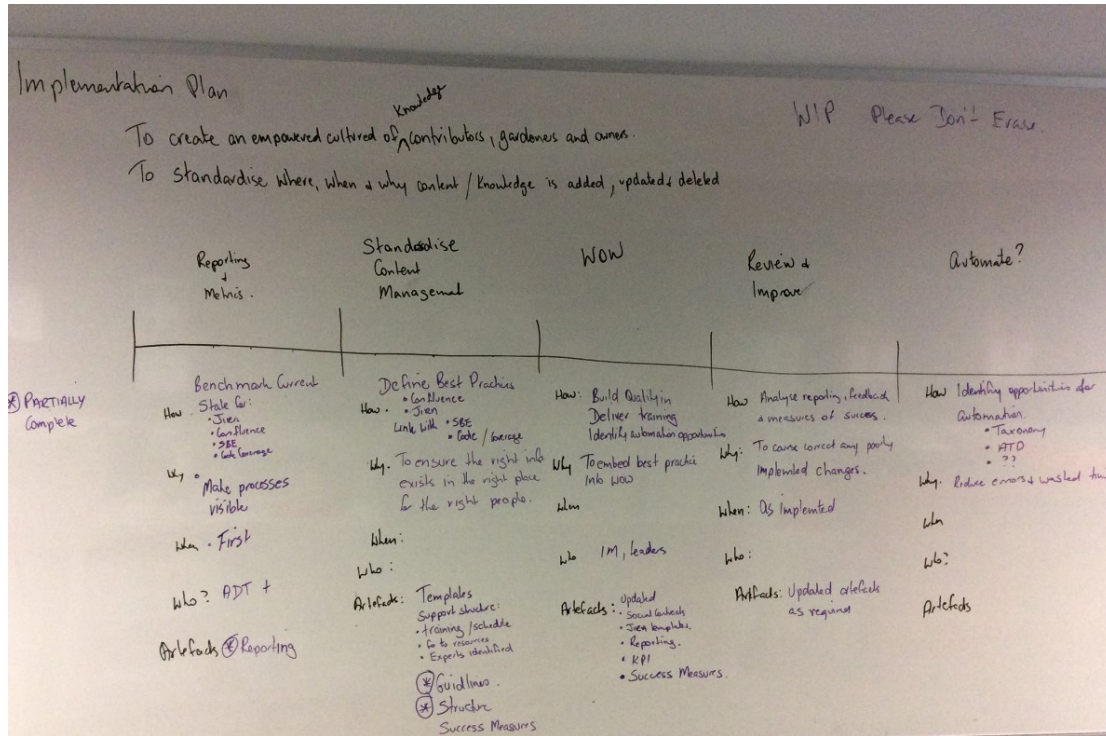 Implementation Plan
WIP Please Don't Erase
Knowledge
To create an empowered cultured of contributors, gardeners and owners.
To Standardise Where, When & why content / Knowledge is added, updated & deleted
Reporting
+
Metrics.
Standardise
Content
Management
WOW
Review &
Improve
Automate?
* PARTIALLY
Complete
Benchmark Current
How. State for:
• Jira
• Confluence
• SBE
• Code Coverage
Why •
Make processes
visible
When • First
Who? ADT +
Artefacts * Reporting
Define Best Practices
• Confluence
How. • Jira
Link with • SBE
• Code / Coverage
Why. To ensure the right info
exists in the right place
for the right people.
When:
Who:
Artefacts: Templates
Support structure:
• training / schedule
• Go to resources
• Experts identified
* Guidlines.
* Structure
Success Measures
How: Build Quality in
Deliver training
Identify automation opportunities
Why To embed best practice
into WOW
When
Who IM, leaders
Artefacts: Updated
• Social Contracts
• Jira templates
• Reporting.
• KPI
• Success Measures.
How Analyse reporting, feedback
& measures of success.
Why: To course correct any poorly
implemted changes.
When: As implemted
Who:
Artifacts: Updated artefacts
as required
How Identify opportunities for
automation.
• Taxonomy
• ATD
• ??
Why. Reduce errors & wasted
When
Who?
Artefacts